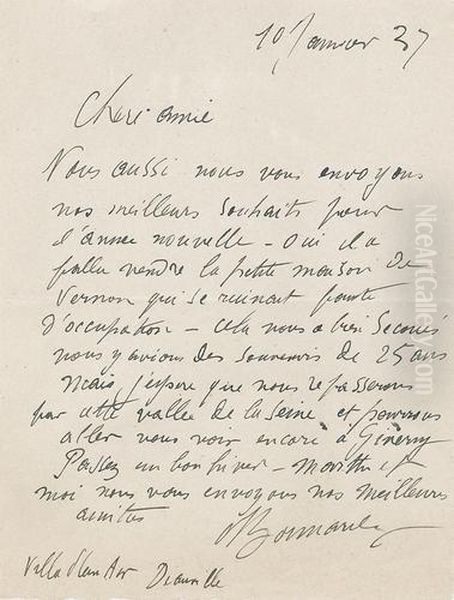 10 Janvier 37
Chère amie
Nous aussi nous vous envoyons
nos meilleurs souhaits pour
l'année nouvelle - oui il a
fallu vendre la petite maison de
Vernon qui se ruinait faute
d'occupation - cela nous a bien secoués
nous y avions des souvenirs de 25 ans
Mais j'espère que nous repasserons
par cette vallée de la Seine et pourrons
aller vous voir encore à Giverny
Passez un bon hiver - Marthe et
moi nous vous envoyons nos meilleures
amitiés
PBonnard
Villa Deauville
NiceArtGallery.com